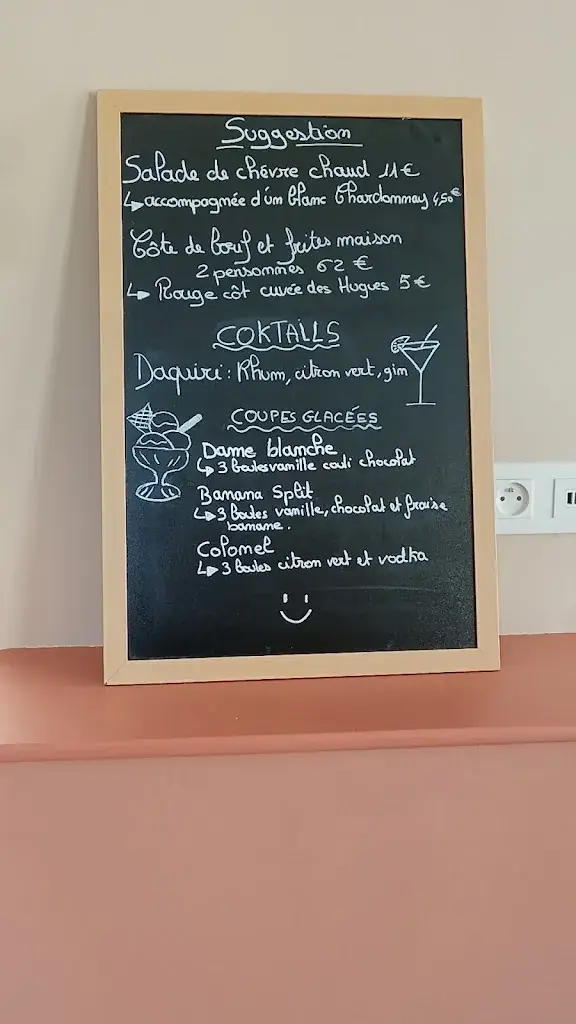 Suggestion
Salade de chèvre chaud 11€
↳ accompagnée d'un blanc Chardonnay 4,50€
Côte de bœuf et frites maison
2 personnes 62 €
↳ Rouge côt cuvée des Hugues 5€
COKTAILS
Daquiri : Rhum, citron vert, gim
COUPES GLACÉES
Dame blanche
↳ 3 boules vanille couli chocolat
Banana Split
↳ 3 boules vanille, chocolat et fraise
banane.
Colonel
↳ 3 boules citron vert et vodka